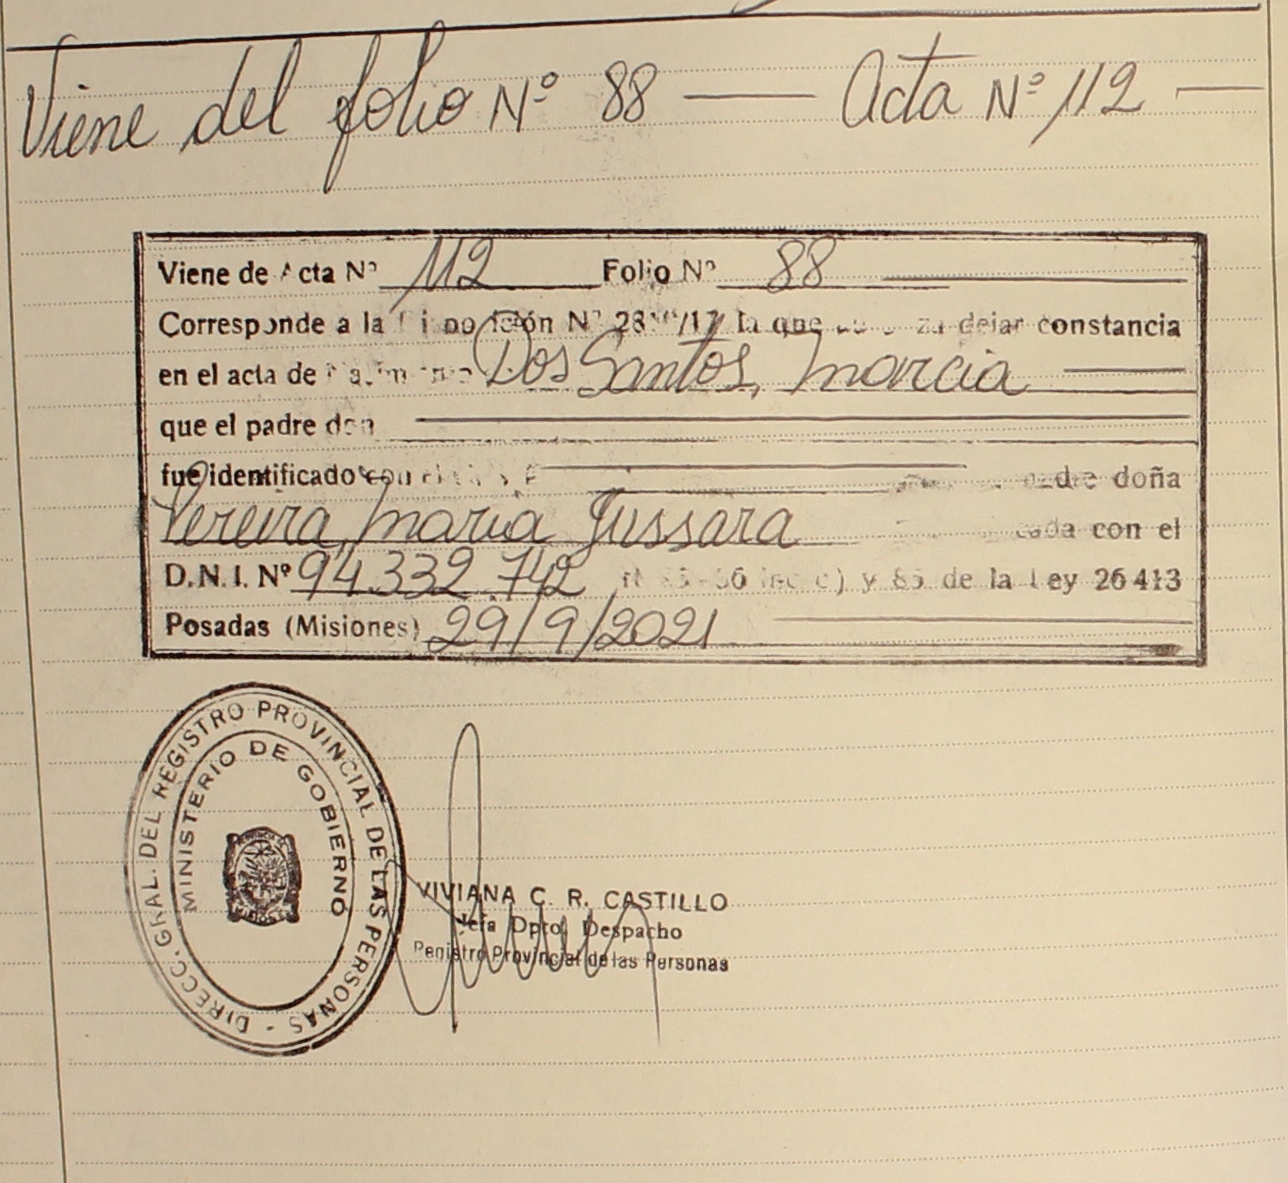 Viene del folio Nº 88 — Acta Nº 112 —
Viene de Acta Nº 112 Folio Nº 88
Corresponde a la Nº la que dejar constancia
en el acta de Dos Santos, Marcia
que el padre don
fue identificado con el madre doña
Pereira, Maria Jussara con el
D.N.I. Nº 94.332.742 y 85 de la Ley 26413
Posadas (Misiones) 29/9/2021
DIRECC. GRAL. DEL REGISTRO PROVINCIAL DE LAS PERSONAS -
MINISTERIO DE GOBIERNO
VIVIANA C. R. CASTILLO
Jefa Dpto. Despacho
Registro Provincial de las Personas